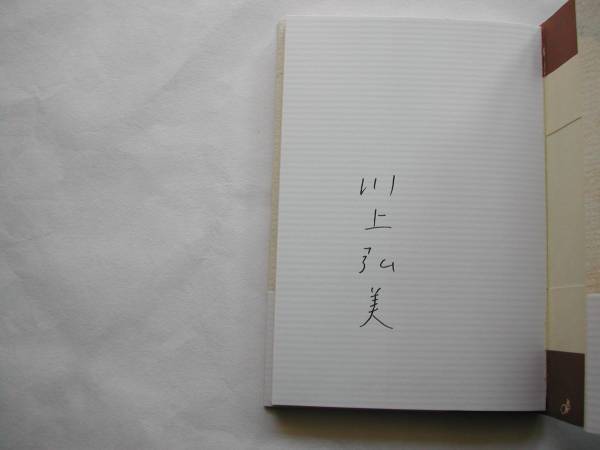 川上弘美